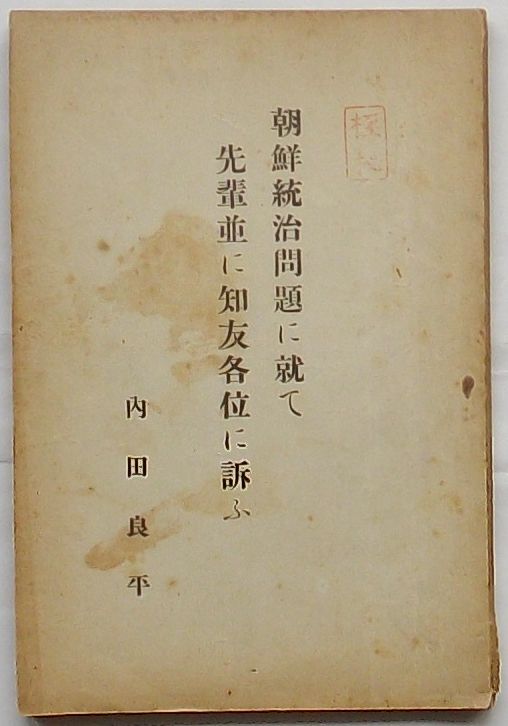 極秘
朝鮮統治問題に就て
先輩並に知友各位に訴ふ
內田良平